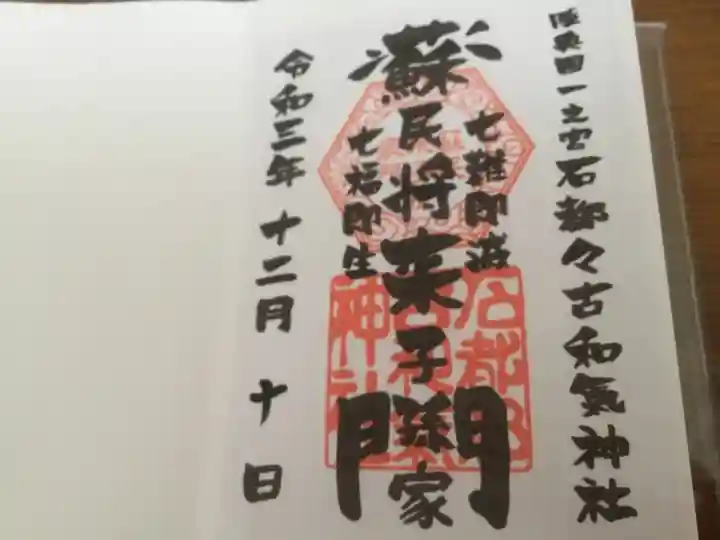 陸奥国一之宮石都々古和氣神社
七難即滅
蘇民将来子孫家門
七福即生
令和三年十二月十日
石都都
古和氣
神社